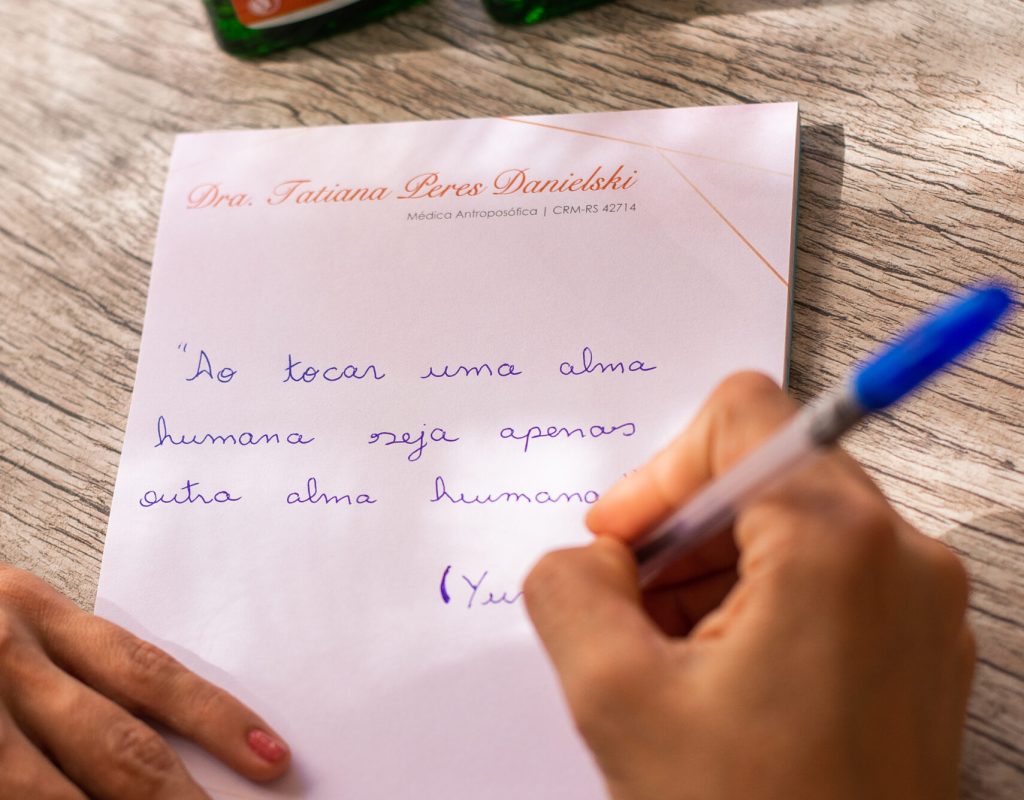 Dra. Tatiana Peres Danielski
Médica Antroposófica | CRM-RS 42714
"Ao tocar uma alma
humana seja apenas
outra alma humana"
(Yun